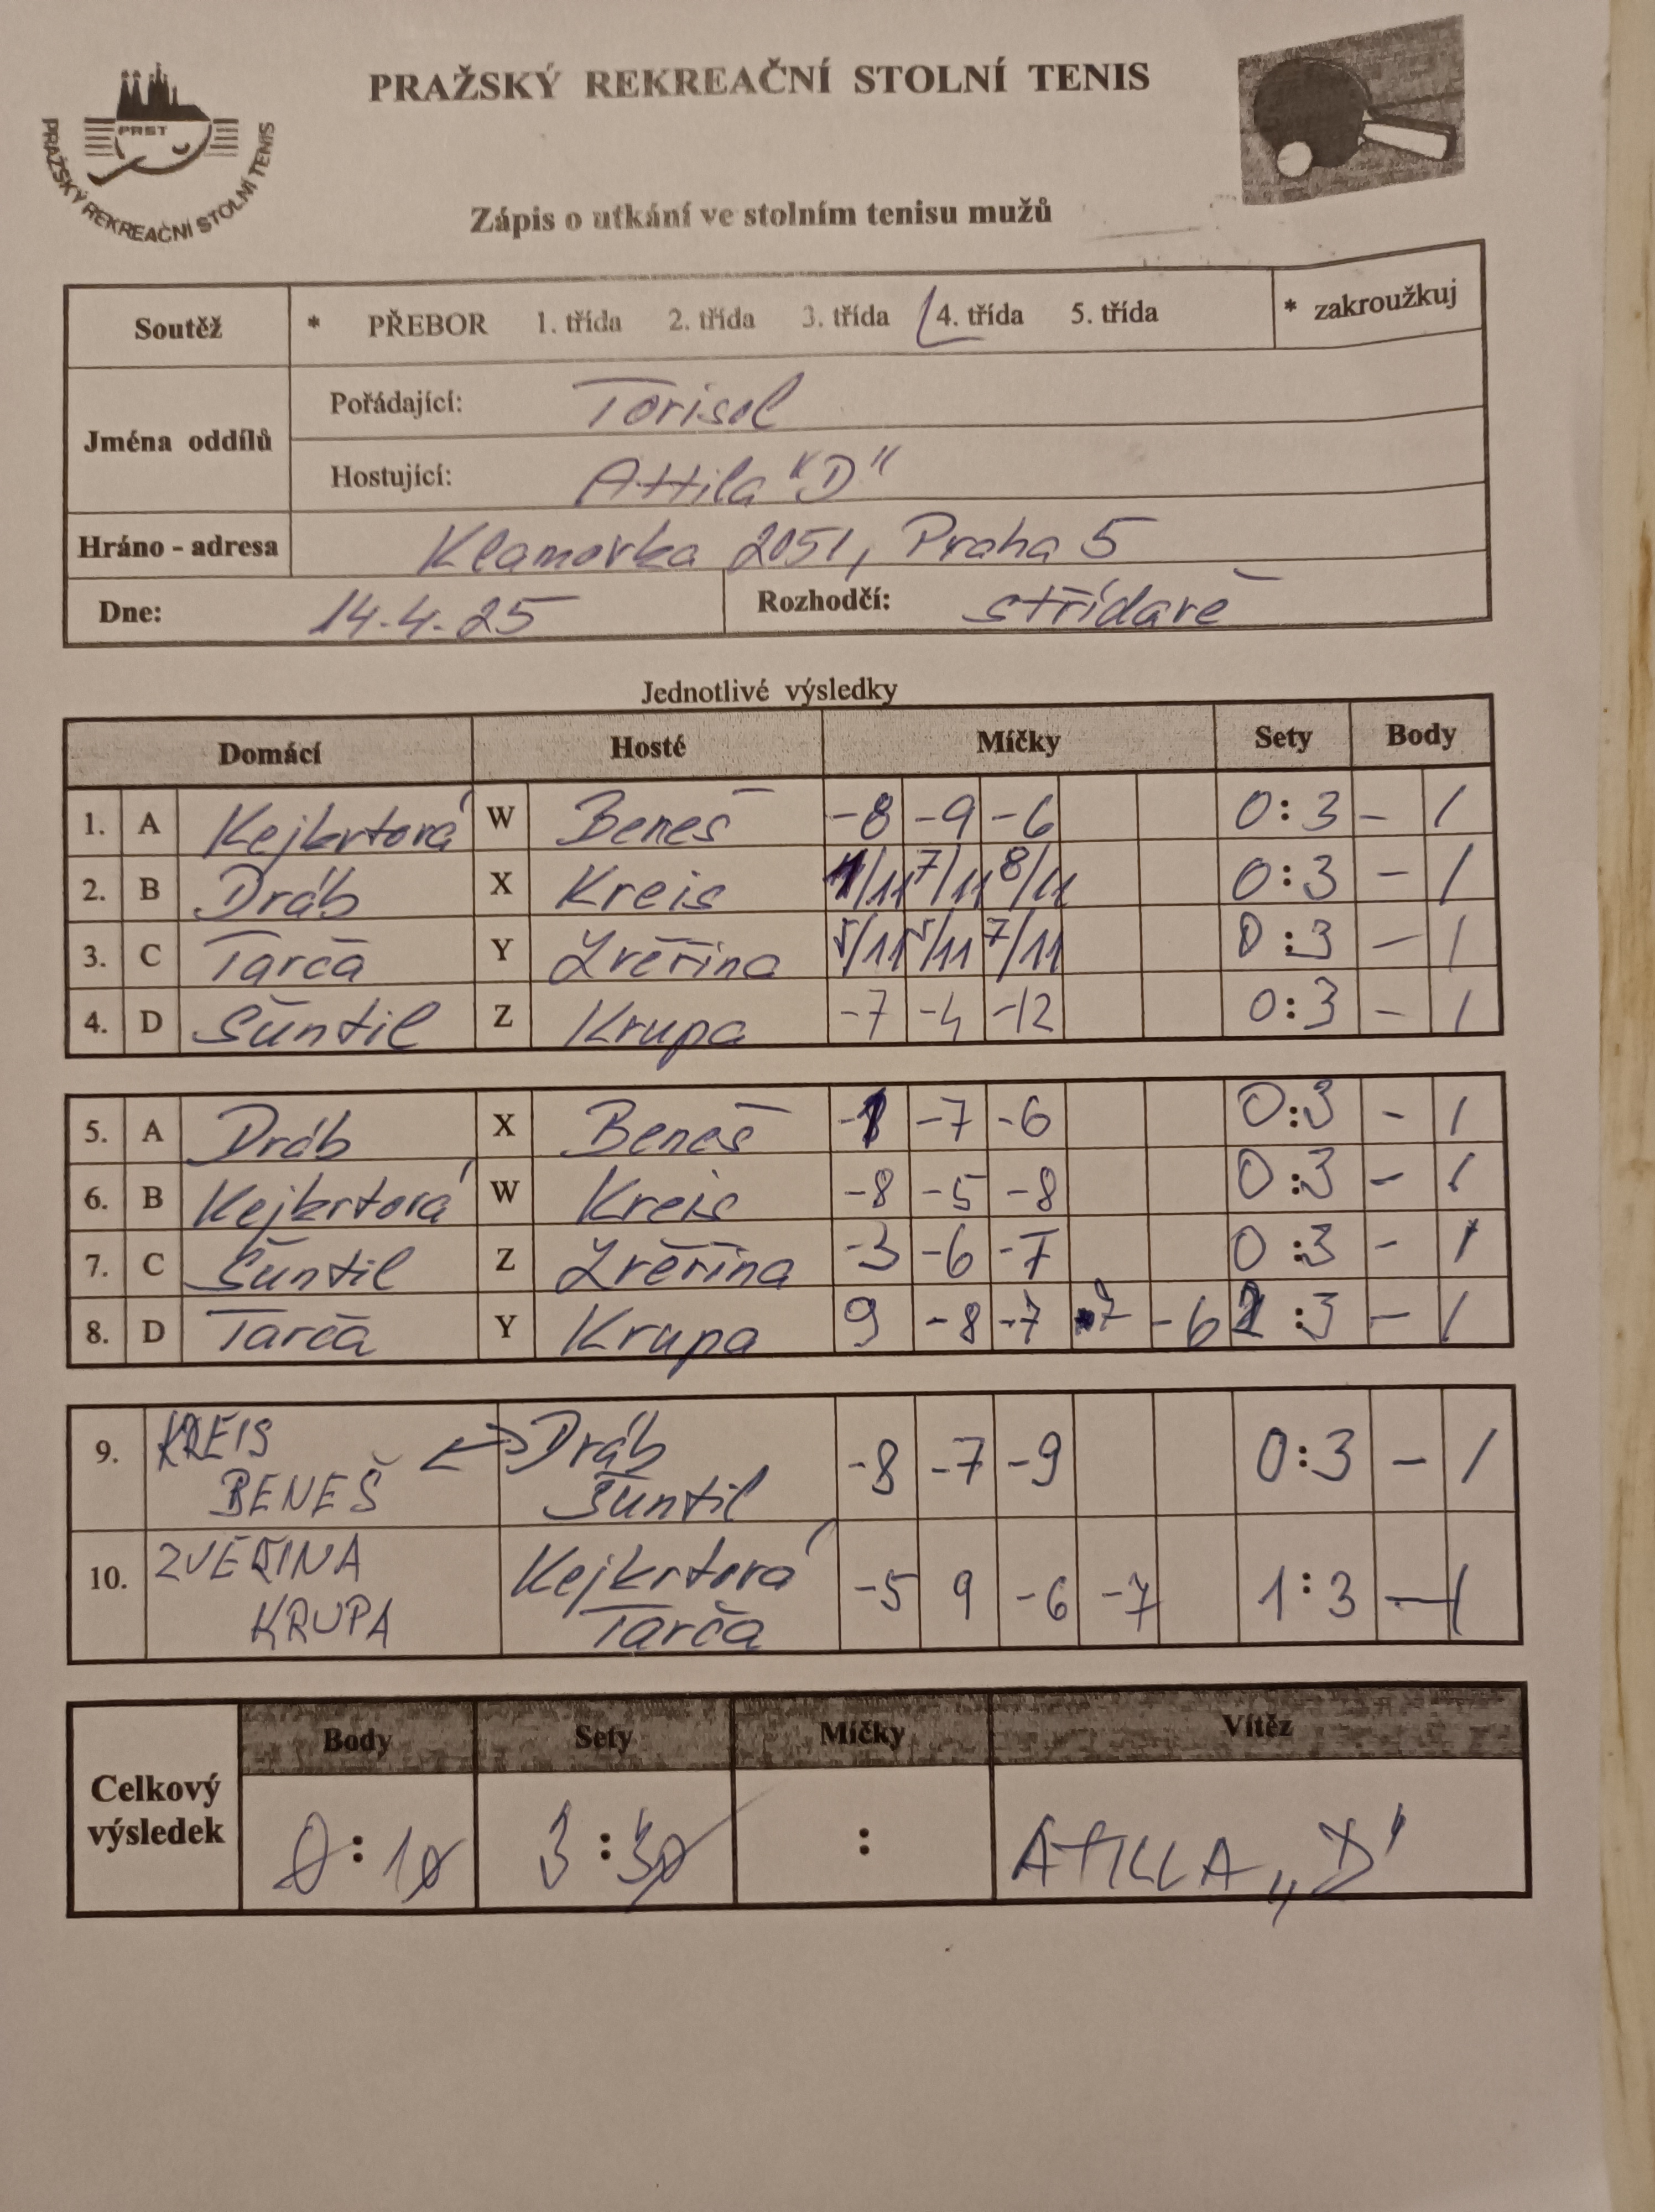 PRAŽSKÝ REKREAČNÍ STOLNÍ TENIS
PRST
PRAŽSKÝ REKREAČNÍ STOLNÍ TENIS
Zápis o utkání ve stolním tenisu mužů
Soutěž * PŘEBOR 1. třída 2. třída 3. třída 4. třída 5. třída * zakroužkuj
Jména oddílů
Pořádající: Torisol
Hostující: Attila "D"
Hráno - adresa Klamovka 2051, Praha 5
Dne: 14.4.25 Rozhodčí: střídavě
Jednotlivé výsledky
Domácí Hosté Míčky Sety Body
1. A Kejkrtová W Beneš -8 -9 -6 0:3 - 1
2. B Dráb X Kreis /11 7/11 8/11 0:3 - 1
3. C Tarča Y Zvěřina 5/11 5/11 7/11 0:3 - 1
4. D Šuntil Z Krupa -7 -4 -12 0:3 - 1
5. A Dráb X Beneš -7 -6 0:3 - 1
6. B Kejkrtová W Kreis -8 -5 -8 0:3 - 1
7. C Šuntil Z Zvěřina -3 -6 -7 0:3 - 1
8. D Tarča Y Krupa 9 -8 -7 7 -6 2:3 - 1
9. KREIS Dráb
BENEŠ Šuntil -8 -7 -9 0:3 - 1
10. ZVĚŘINA Kejkrtová
KRUPA Tarča -5 9 -6 -7 1:3 - 1
Celkový výsledek
Body Sety Míčky Vítěz
0:10 3:30 : ATILLA „D"